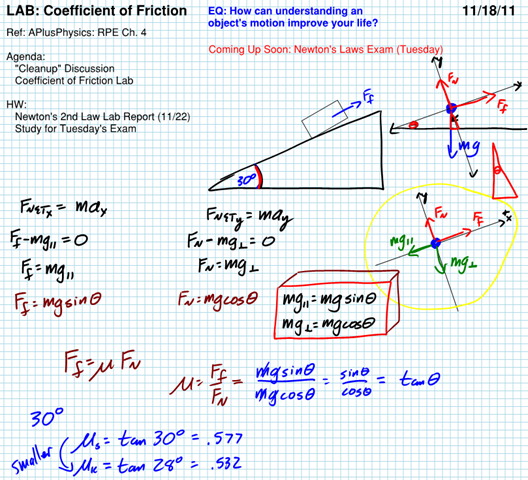 LAB: Coefficient of Friction
EQ: How can understanding an
object's motion improve your life?
11/18/11
Ref: APlusPhysics: RPE Ch. 4
Coming Up Soon: Newton's Laws Exam (Tuesday)
Agenda:
"Cleanup" Discussion
Coefficient of Friction Lab
HW:
Newton's 2nd Law Lab Report (11/22)
Study for Tuesday's Exam
Ff
30°
y
FN
Ff
x
θ
mg
θ
y
FN
Ff
x
mg||
mg⊥
FNETx = max
Ff-mg|| = 0
Ff = mg||
Ff = mg sinθ
FNETy = may
FN-mg⊥ = 0
FN = mg⊥
FN = mgcosθ
mg|| = mg sinθ
mg⊥ = mgcosθ
Ff = μ FN
μ = Ff/FN = mgsinθ/mgcosθ = sinθ/cosθ = tanθ
30°
smaller
μs = tan 30° = .577
μk = tan 28° = .532